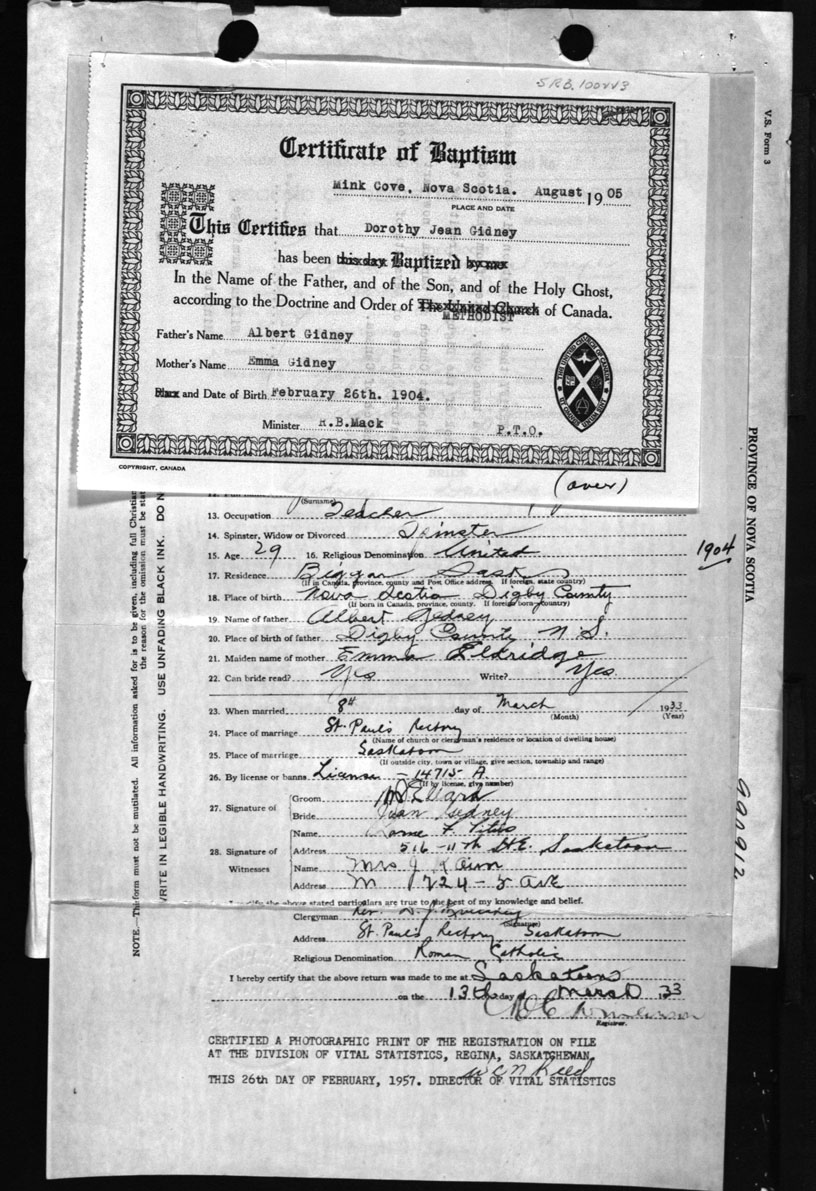 S R B. 100443
Certificate of Baptism
Mink Cove, Nova Scotia. August 1905
PLACE AND DATE
This Certifies that Dorothy Jean Gidney
has been this day Baptized by me
In the Name of the Father, and of the Son, and of the Holy Ghost,
according to the Doctrine and Order of The United Church of Canada.
METHODIST
Father's Name Albert Gidney
Mother's Name Emma Gidney
Place and Date of Birth February 26th. 1904.
Minister R.B.Mack P.T.O.
THE UNITED CHURCH OF CANADA
COPYRIGHT, CANADA
(over)
(Surname)
13. Occupation Teacher
14. Spinster, Widow or Divorced Spinster
15. Age 29 16. Religious Denomination United
1904
17. Residence Biggar Sask
(If in Canada, province, county and Post Office address. If foreign, state country)
18. Place of birth Nova Scotia Digby County
(If born in Canada, province, county. If foreign born, country)
19. Name of father Albert Gidney
20. Place of birth of father Digby County N. S.
21. Maiden name of mother Emma Eldridge
22. Can bride read? Yes Write? Yes
23. When married 8th day of March 1933
(Month) (Year)
24. Place of marriage St. Paul's Rectory
(Name of church or clergyman's residence or location of dwelling house)
25. Place of marriage Saskatoon
(If outside city, town or village, give section, township and range)
26. By license or banns License - 14715 A
(If by license, give number)
27. Signature of
Groom
Bride Jean Gidney
28. Signature of Witnesses
Name F.
Address 516-11th St E. Saskatoon
Name Mrs J.
Address 1724-
I certify the above stated particulars are true to the best of my knowledge and belief.
Clergyman Rev. D. J.
(Signature)
Address St. Paul's Rectory Saskatoon
Religious Denomination Roman Catholic
I hereby certify that the above return was made to me at Saskatoon
on the 13th day of March 1933
Registrar.
CERTIFIED A PHOTOGRAPHIC PRINT OF THE REGISTRATION ON FILE
AT THE DIVISION OF VITAL STATISTICS, REGINA, SASKATCHEWAN.
THIS 26th DAY OF FEBRUARY, 1957. DIRECTOR OF VITAL STATISTICS
NOTE.—This form must not be mutilated. All information asked for is to be given, including full Christian
the reason for the omission must be sta
WRITE IN LEGIBLE HANDWRITING. USE UNFADING BLACK INK. DO N
V.S. Form 3
PROVINCE OF NOVA SCOTIA